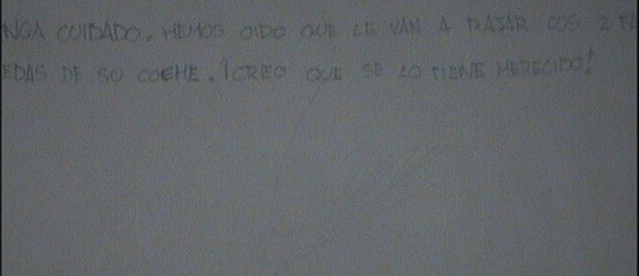 NGA CUIDADO. HEMOS OIDO QUE LE VAN A RAJAR LOS 2
EDAS DE SU COCHE. ¡CREO QUE SE LO TIENE MERECIDO!